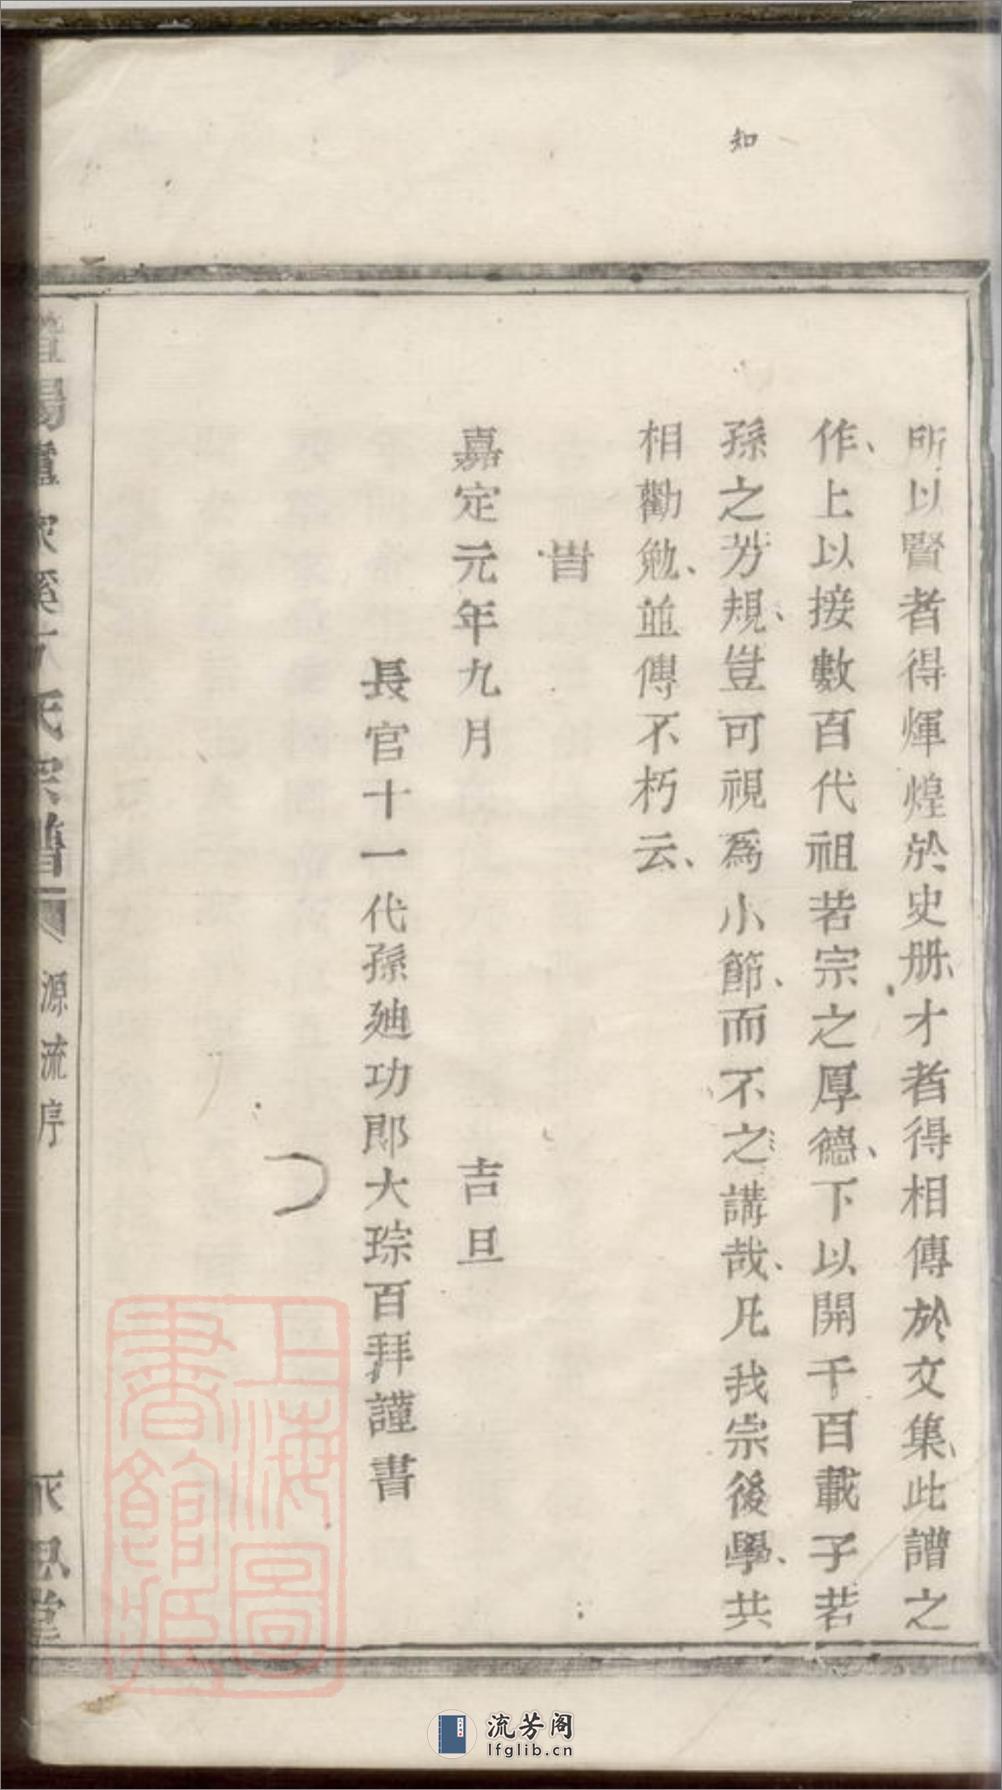 知
所以賢者得輝煌於史册、才者得相傳於文集、此譜之
作、上以接數百代祖若宗之厚德、下以開千百載子若
孫之芳規、豈可視爲小節、而不之講哉、凡我宗後學、共
相勸勉、並傳不朽云、
旹
嘉定元年九月 吉旦
長官十一代孫廸功郎大琮百拜謹書
氏宗譜
源流序
堂
上海圖書館藏
流芳阁
lfglib.cn